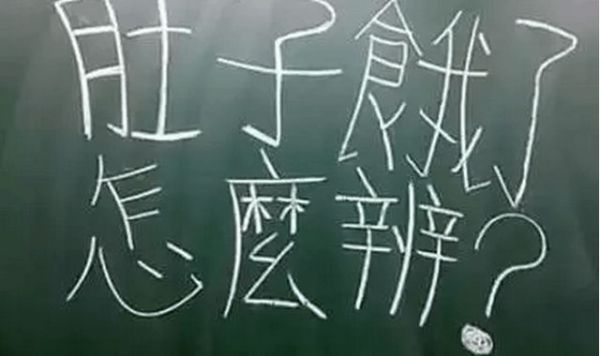 肚子餓了
怎麼辨?